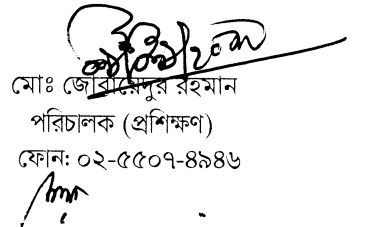 মোঃ জোবায়েদুর রহমান
পরিচালক (প্রশিক্ষণ)
ফোন: ০২-৫৫০৭-৪৯৪৬